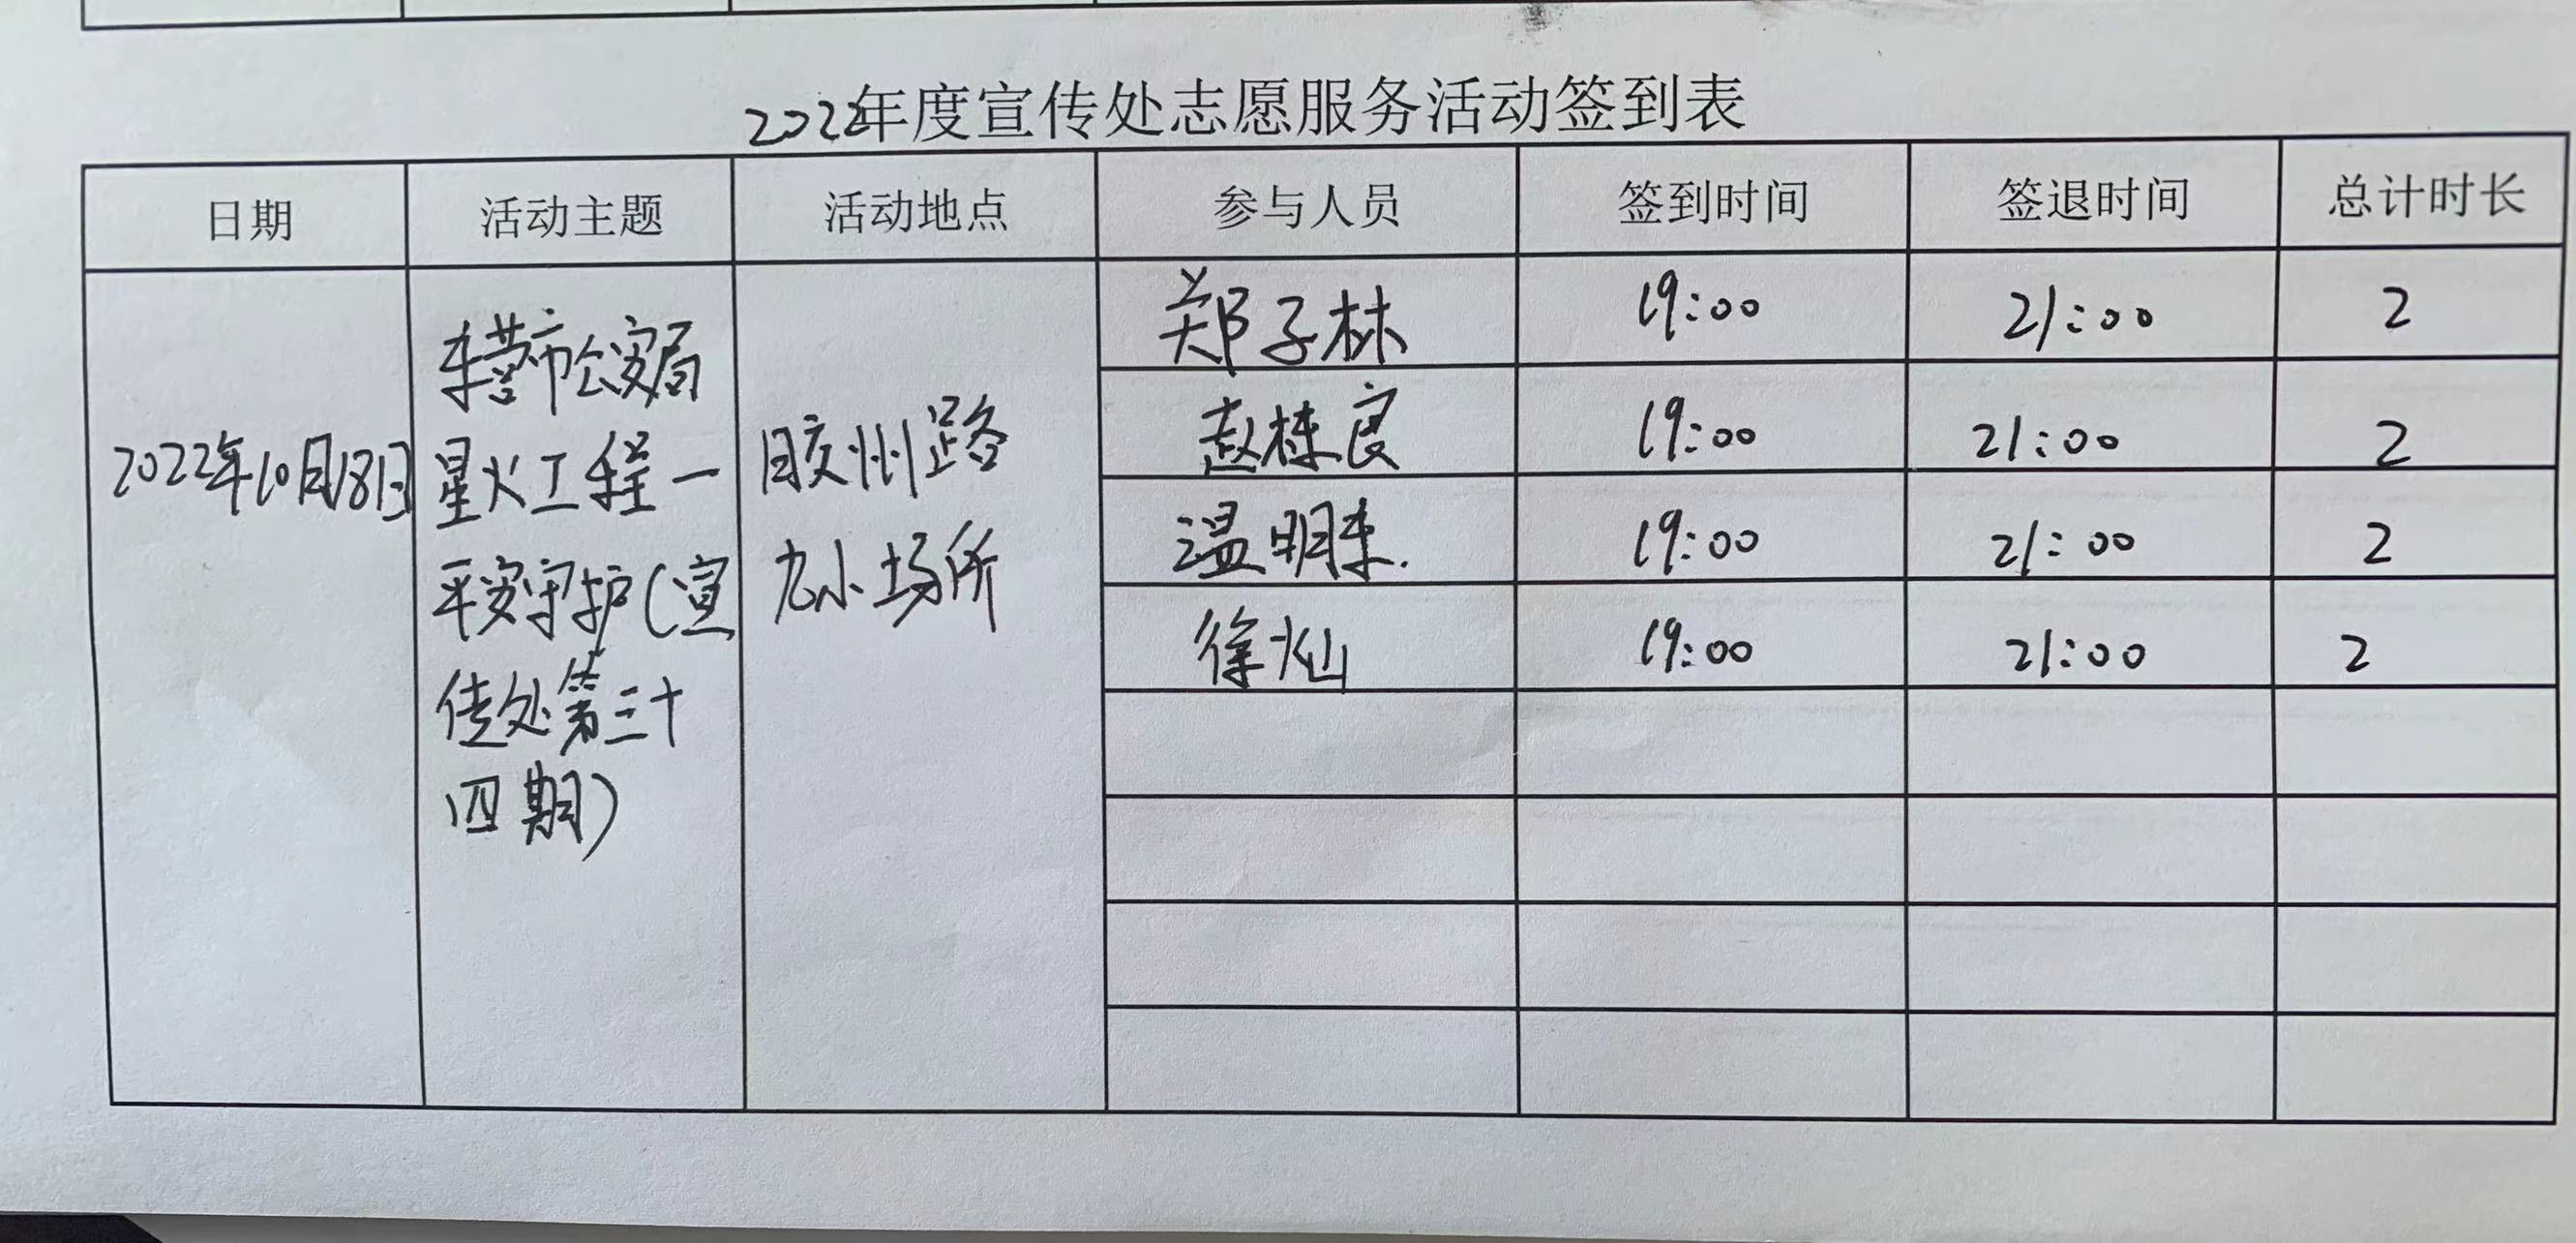 2022年度宣传处志愿服务活动签到表
日期 活动主题 活动地点 参与人员 签到时间 签退时间 总计时长
2022年10月18日
东营市公安局
星火工程一
平安守护(宣
传处第三十
四期)
胶州路
九小场所
郑子林 19:00 21:00 2
赵栋良 19:00 21:00 2
温明东. 19:00 21:00 2
徐灿 19:00 21:00 2